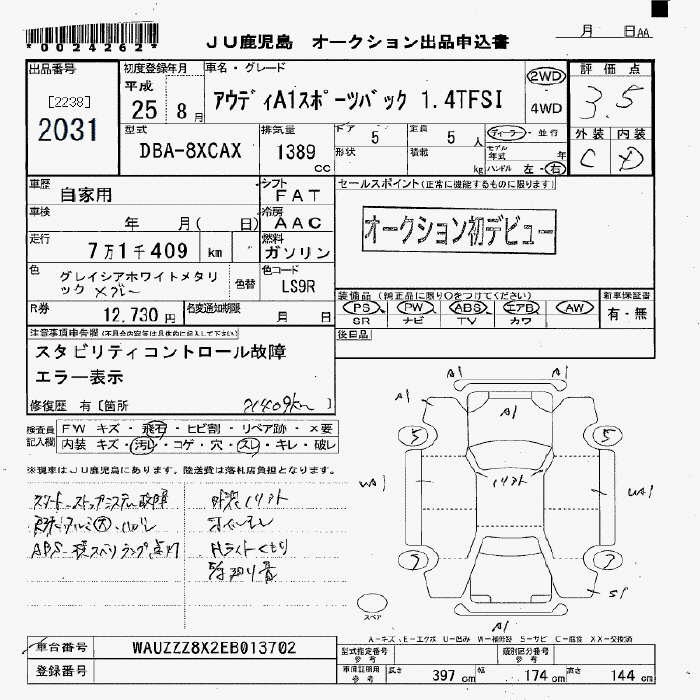 *0024262*
JU鹿児島 オークション出品申込書
月 日AA
出品番号
[2238]
2031
初度登録年月
平成
25 8月
車名・グレード
アウディA1スポーツバック 1.4TFSI
2WD
4WD
評価点
3.5
外装 内装
C D
型式
DBA-8XCAX
排気量
1389
cc
ドア 5
形状
定員 5人
積載 kg
ディーラー・並行
モデル年式 年
ハンドル 左・右
車歴
自家用
シフト
FAT
車検
年 月( 日)
冷房
AAC
走行
7万1千409 km
燃料
ガソリン
色
グレイシアホワイトメタリ
ック
色替
色コード
LS9R
R券
12,730円
名変通知期限
月 日
セールスポイント(正常に機能するものに限ります)
オークション初デビュー
装備品(純正品に限り○をつけてください)
PS PW ABS エアB AW
SR ナビ TV カワ
新車保証書
有・無
後日品
注意事項申告欄(不具合内容等は具体的に記入して下さい)
スタビリティコントロール故障
エラー表示
修復歴 有〔箇所 〕
71409km
検査員
記入欄
FW キズ・飛石・ヒビ割・リペア跡・×要
内装 キズ・汚レ・コゲ・穴・スレ・キレ・破レ
※現車はJU鹿児島にあります。陸送費は落札店負担となります。
スタートストップシステム故障
外装ソリフト
Hライトくもり
A1
A1
A1
A1
5
5
5
5
UA1
UA1
S1
A1
スペア
A-キズ、E-エクボ U-凹み W-補修跡 S-サビ C-腐食 XX-交換済
車台番号
WAUZZZ8X2EB013702
登録番号
型式指定番号
参考
類別区分番号
参考
車庫証明用
参考
長さ 397cm
幅 174cm
高さ 144cm